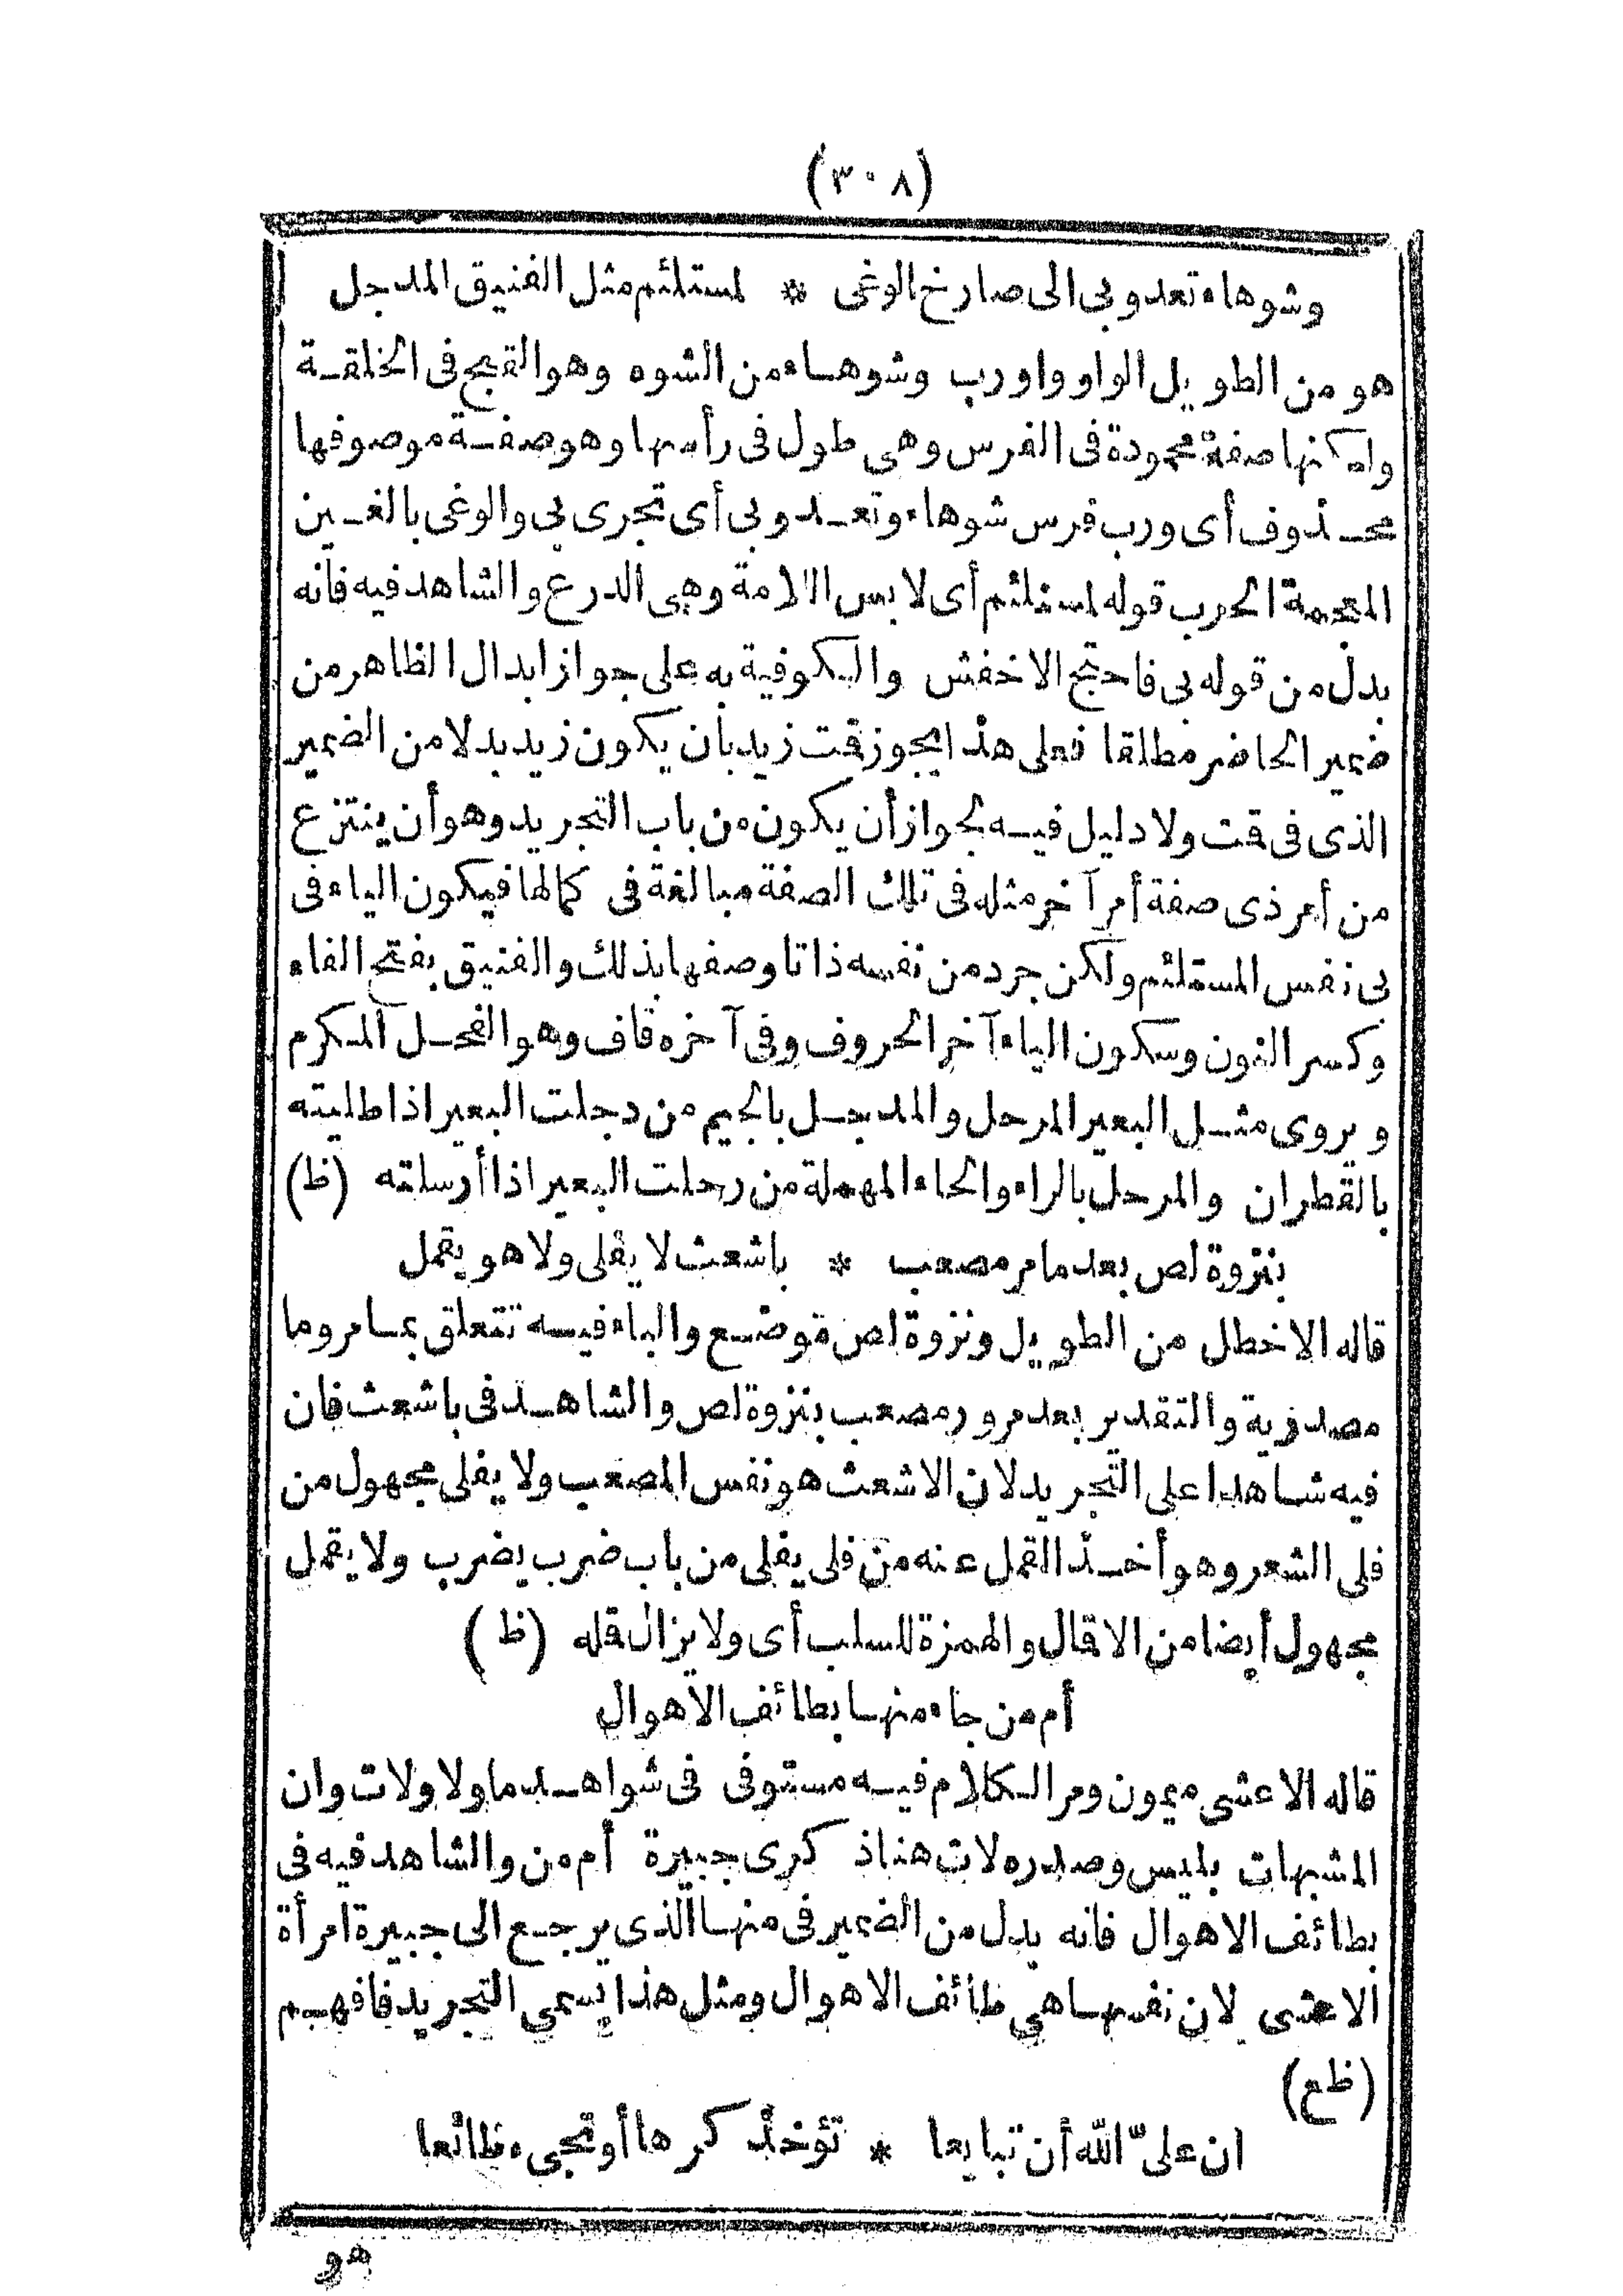 (٣٠٨)
وشوهاء تعدو بى الى صارخ الوغى * لمستلئم مثل الفنيق المدجل
هو من الطويل الواو واو رب وشوهاء من الشوه وهو القبح فى الخلقة
ولكنها صفة محمودة فى الفرس وهى طول فى رأسها وهو صفة موصوفها
محذوف أى ورب فرس شوهاء وتعدو بى أى تجرى بي والوغى بالغين
المعجمة الحرب قوله لمستلئم أى لابس اللامة وهى الدرع والشاهد فيه فانه
بدل من قوله بى فاحتج الاخفش والكوفية به على جواز ابدال الظاهر من
ضمير الحاضر مطلقا فعلى هذا يجوز قمت زيد بان يكون زيد بدلا من الضمير
الذى فى قمت ولا دليل فيه لجواز أن يكون من باب التجريد وهو أن ينتزع
من أمر ذى صفة أمر آخر مثله فى تلك الصفة مبالغة فى كمالها فيكون الياء فى
بى نفس المستلئم ولكن جرد من نفسه ذاتا وصفها بذلك والفنيق بفتح الفاء
وكسر النون وسكون الياء آخر الحروف وفى آخره قاف وهو الفحل المكرم
ويروى مثل البعير المرحل والمدجل بالجيم من دجلت البعير اذا طليته
بالقطران والمرحل بالراء والحاء المهملة من رحلت البعير اذا أرسلته (ظ)
بنزوة لص بعد ما مر مصعب * باشعث لا يفلى ولا هو يقمل
قاله الاخطل من الطويل ونزوة لص موضع والباء فيه تتعلق بمامر وما
مصدرية والتقدير بعد مرور مصعب بنزوة لص والشاهد فى باشعث فان
فيه شاهدا على التجريد لان الاشعث هو نفس المصعب ولا يفلى مجهول من
فلى الشعر وهو أخذ القمل عنه من فلى يفلى من باب ضرب يضرب ولا يقمل
مجهول أيضا من الاقال والهمزة للسلب أى ولا يزال قله (ظ)
أم من جاء منها بطائف الاهوال
قاله الاعشى ميمون ومر الكلام فيه مستوفى فى شواهد ما ولا ولات وان
المشبهات بليس وصدره لات هناذ كرى جبيرة أم من والشاهد فيه فى
بطائف الاهوال فانه بدل من الضمير فى منها الذى يرجع الى جبيرة امرأة
الاعشى لان نفسها هي طائف الاهوال ومثل هذا يسمى التجريد فافهم
(ظع)
ان علىّ الله أن تبايعا * تؤخذ كرها أو تجىء طائعا
هو